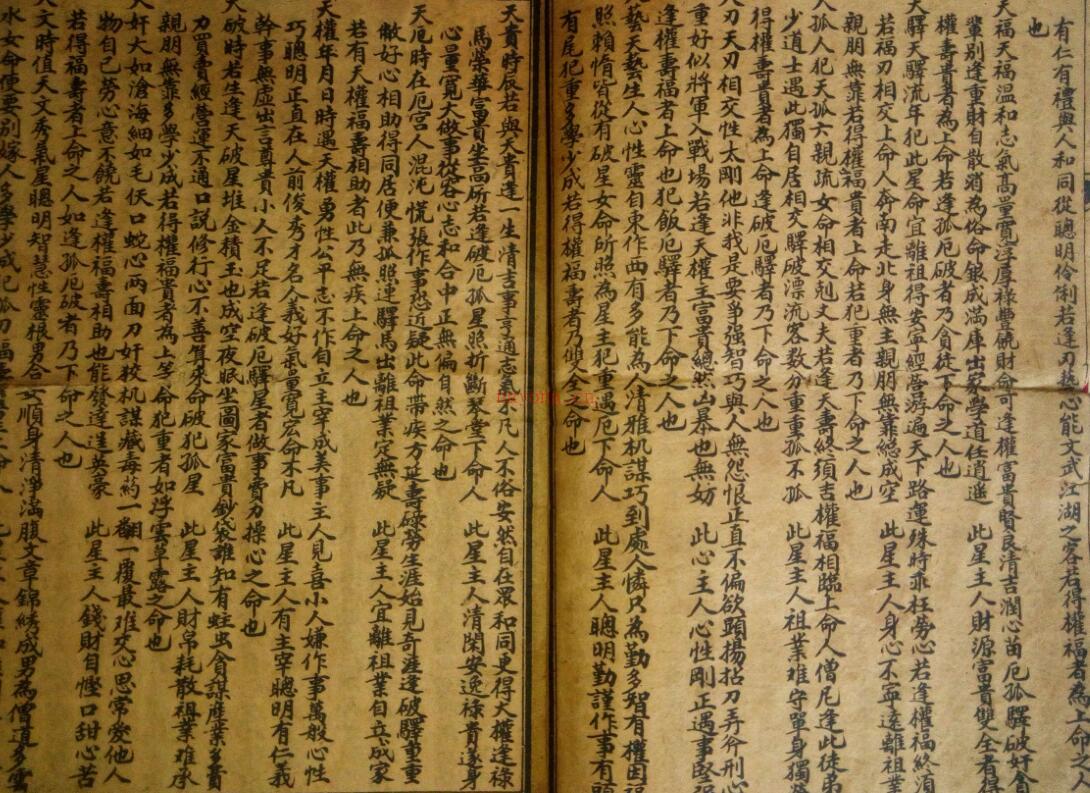 有仁有禮與人和同從聰明伶俐若逢刃藝心能文武江湖之客若得權福者為上命之人
也
天福天福温和志氣髙量寛浮厚祿豐佩財命可逢權富貴賢良清吉潤心苗厄孤驛破奸貪
輩别逢重財自散消為俗命銀成満庫出家學道任逍遥 此星主人財源富貴雙全者得
權壽貴者為上命若逢孤厄破者乃貪徒下命之人也
天驛天驛流年犯此星命宜離祖得安寧經營游遍天下路運殊時乖枉劳心若逢權福終須
若福刃相交上命人奔南走北身無主親朋無靠總成空 此星主人身心不寧遠離祖業
親朋無靠若得權福貴者上命若犯重者乃下命之人也
孤人犯天孤六親疏女命相交剋丈夫若逢天壽終須吉權福相臨上命人僧尼逢此徒弟
少道士遇此獨自居相交驛破漂流客数分重重孤不孤 此星主人祖業难守單身獨
得權壽貴者為上命逢破厄驛者乃下命之人也
刃天刃相交性太剛他非我是要爭强智巧與人無怨恨正直不偏欲顕揚拈刀弄斧刑心
重好似將軍入戰場若逢天權主富貴總然凶暴也無妨 此心主人心性剛正遇事堅强
逢權壽福者上命也犯飯厄驛者乃下命之人也
藝天藝生人心性靈自東作西有多能為人清雅机謀巧到處人憐只為勤多智有權因福
照賴惰皆從有破星女命所照為星主犯重遇厄下命人 此星主人聰明勤謹作事有頭
有尾犯重多學少成若得權福壽者乃雙全之命也
天貴時辰若與天貴逢一生清吉事亨通志氣不凡人不俗安然自在眾和同更得天權逢祿
馬榮華富貴坐高所若逢破厄孤星照折斷琴堂下命人 此星主人清閑安逸祿貴遂身
心量寛大做事從容心志和合中正無偏自然之命也
天厄時在厄宮人混沌慌張作事恐近疑此命帶疾方延壽碌劳生涯始見奇涯逢破驛重重
敝好心相助得同居便兼孤照逢驛馬出離祖業定無疑 此星主人宜離祖業自立成家
若有天權福壽相助者此乃無疾上命之人也
天權年月日時遇天權勇性公平志不作自立主宰成美事主人見喜小人嫌作事萬般心性
巧聰明正直在人前俊秀才名人義好氣量寛宏命不凡 此星主人有主宰聰明有仁義
幹事無虛出言尊貴小人不足若逢破厄驛星者做事賣力操心之命也
天破時若生逢天破星堆金積玉也成空夜眠坐圖家富貴鈔袋誰知有蛀虫貪謀産業多費
力買賣經營運不通口説修行心不善算來命破犯孤星 此星主人財帛耗散祖業难承
親朋無靠多學少成若得權福貴者為上等命犯重者如浮雲草露之命也
奸大如滄海細如毛仸口蛇心两面刀奸狡机謀藏毒葯一翻一覆最难交心思常愛他人
物自己劳心意不饒若逢權福壽相助也能發達逞英豪 此星主人錢財自慳口甜心苦
若得福壽者上命之人如逢孤厄破者乃下命之人也
文時值天文秀氣星聰明智慧性靈根男合女順身清淨滿腹文章錦綉成男為僧道多雲
水女命便要别嫁人多學少成犯孤刃福